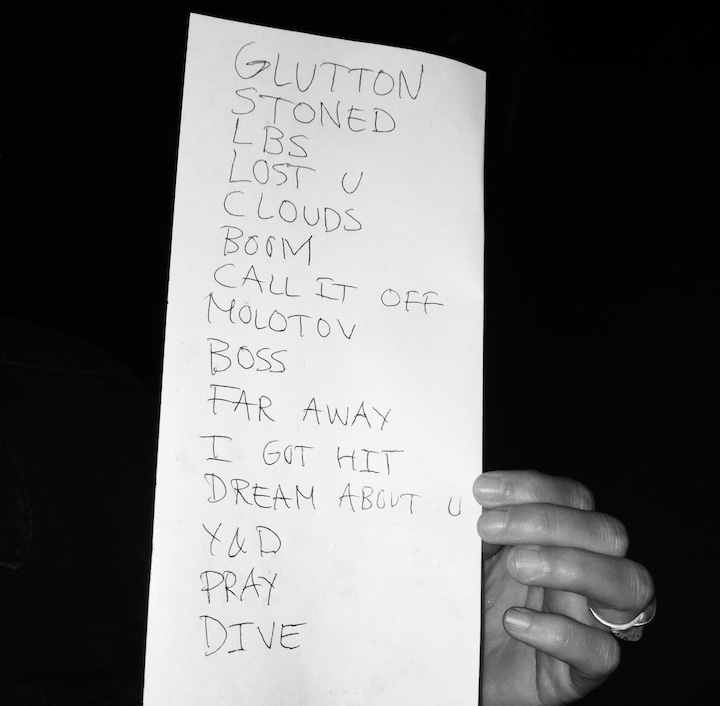 GLUTTON
STONED
LBS
LOST U
CLOUDS
BOOM
CALL IT OFF
MOLOTOV
BOSS
FAR AWAY
I GOT HIT
DREAM ABOUT U
Y&D
PRAY
DIVE